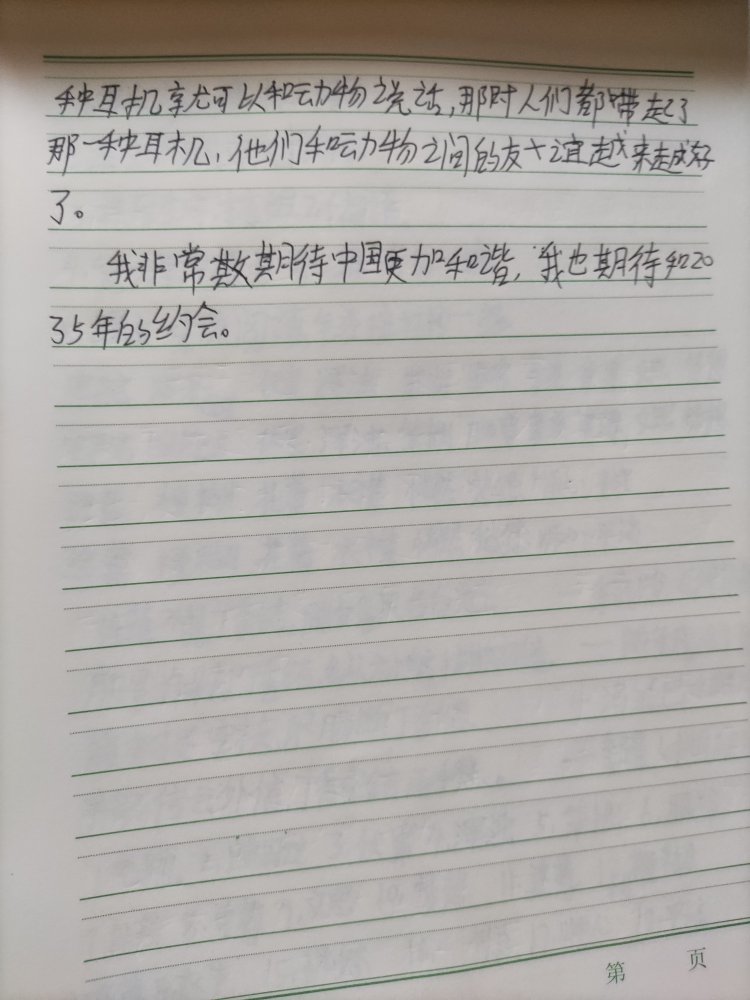 种耳机就可以和动物说话,那时人们都带起了
那一种耳机,他们和动物之间的友谊越来越好
了。
我非常期待中国更加和谐,我也期待和20
35年的约会。
第 页